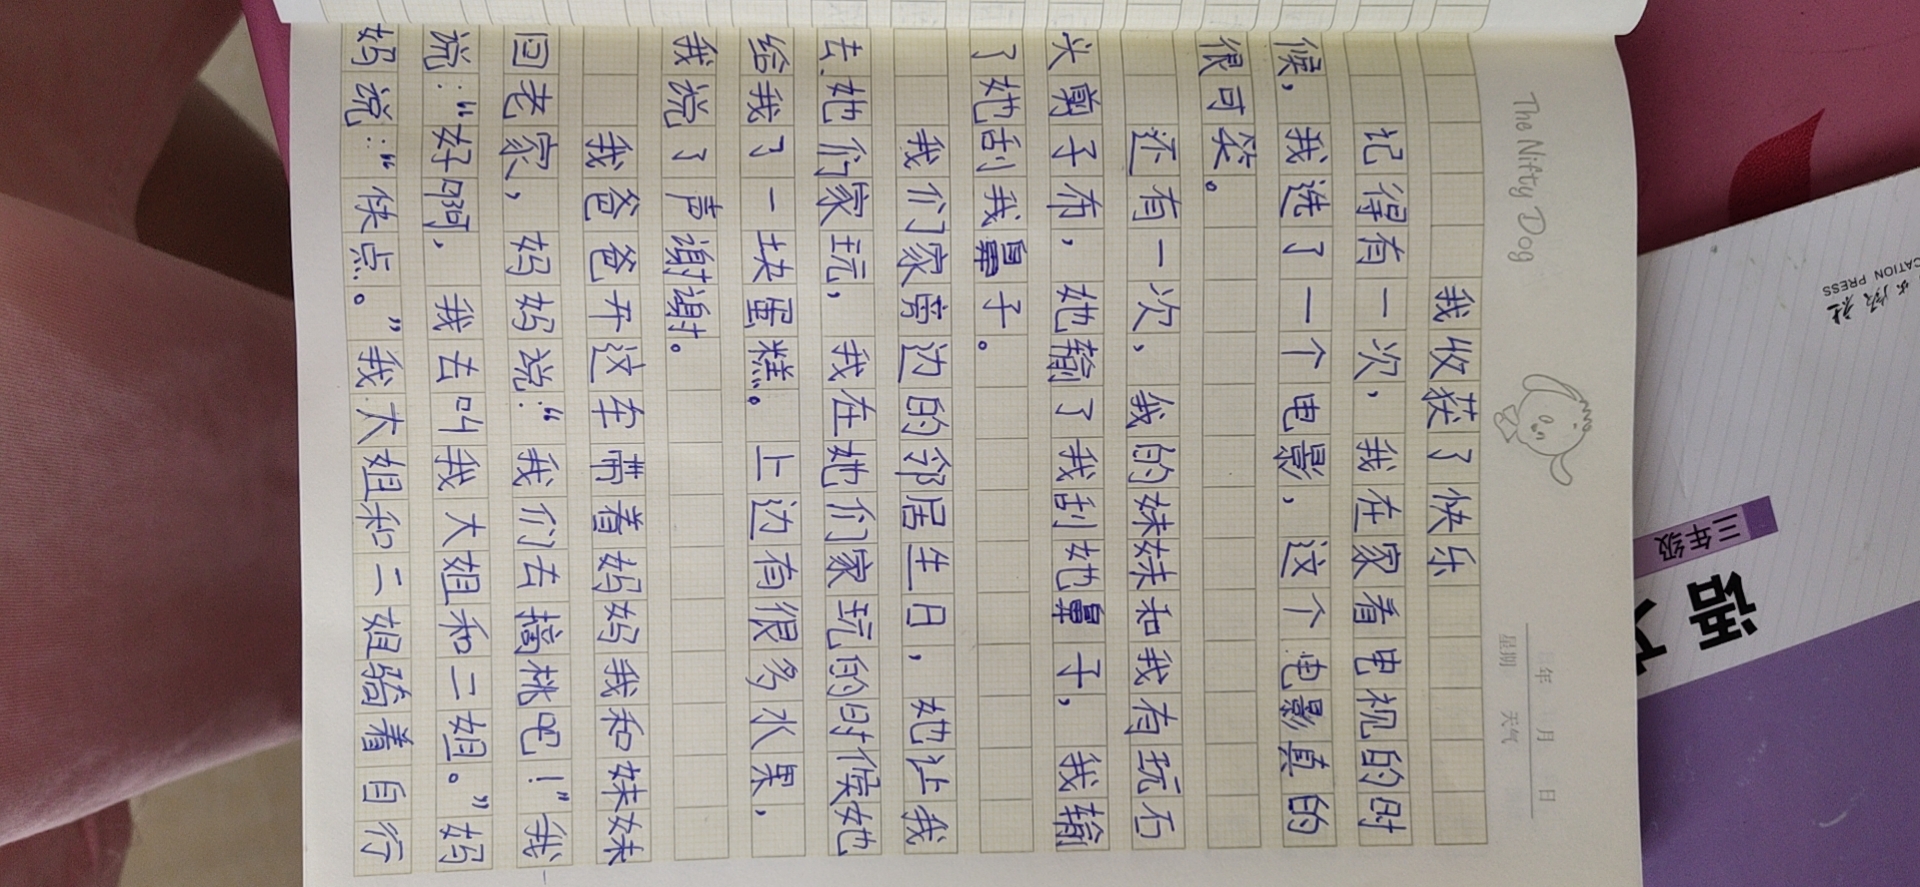 The Nifty Dog
年 月 日
星期 天气
我收获了快乐
记得有一次，我在家看电视的时
候，我选了一个电影，这个电影真的
很可笑。
还有一次，我的妹妹和我有玩石
头剪子布，她输了我刮她鼻子，我输
了她刮我鼻子。
我们家旁边的邻居生日，她让我
去她们家玩，我在她们家玩的时候她
给我了一块蛋糕。上边有很多水果，
我说了声谢谢。
我爸爸开这车带着妈妈我和妹妹
回老家，妈妈说：“我们去摘桃吧！”我
说：“好啊，我去叫我大姐和二姐。”妈
妈说：“快点。”我大姐和二姐骑着自行
三年级
语文
CATION PRESS